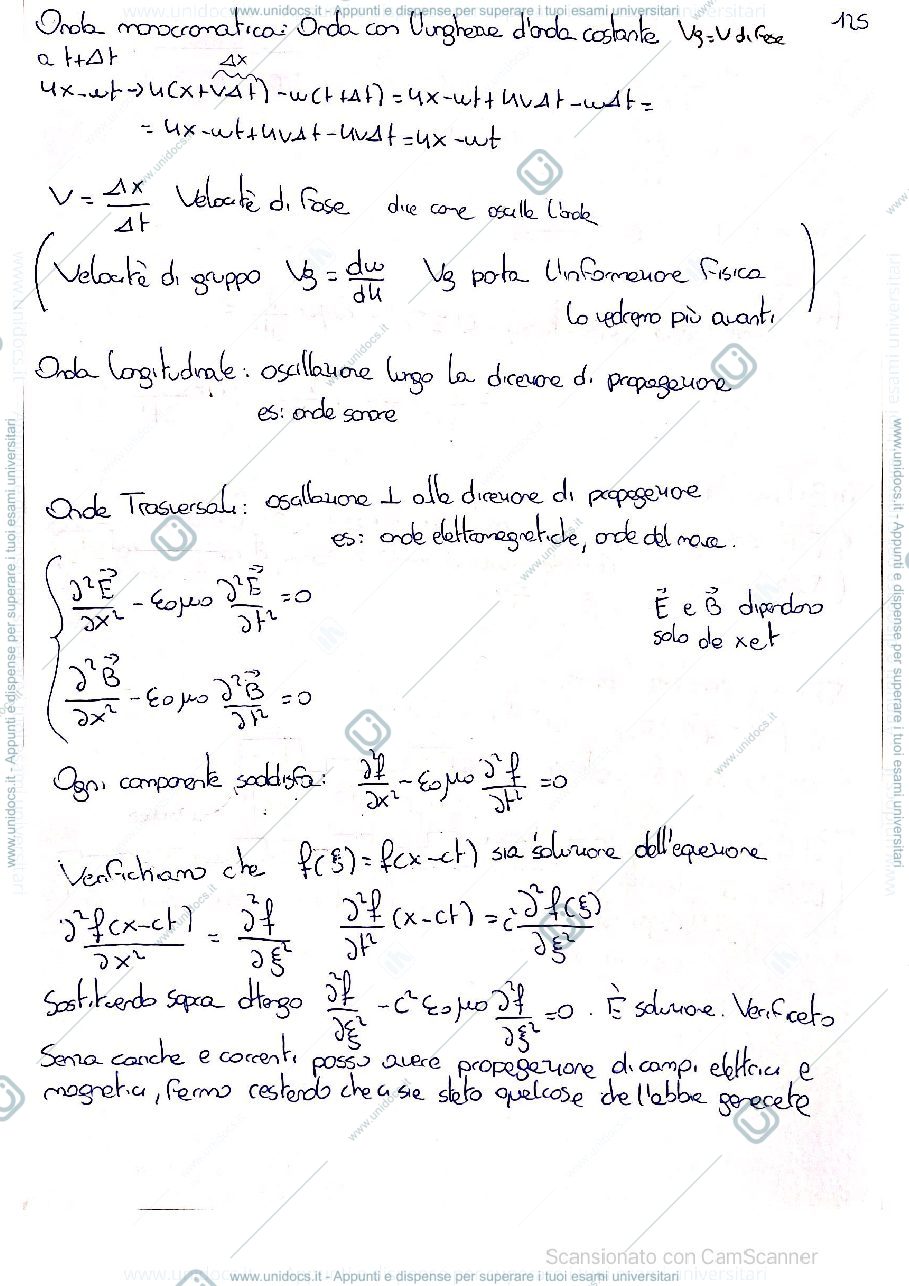 www.unidocs.it - Appunti e dispense per superare i tuoi esami universitari
125
Onda monocromatica: Onda con lunghezza d'onda costante Vg = V di fase
a t+Δt
Δx
kx-ωt → k(x+vΔt) - ω(t+Δt) = kx-ωt+kvΔt-ωΔt =
= kx-ωt+kvΔt-kvΔt = kx-ωt
V = Δx/Δt Velocità di fase dice come oscilla l'onda
(Velocità di gruppo Vg = dω/dk Vg porta l'informazione fisica
lo vedremo più avanti)
Onda longitudinale: oscillazione lungo la direzione di propagazione
es: onde sonore
Onde Trasversali: oscillazione ⊥ alla direzione di propagazione
es: onde elettromagnetiche, onde del mare.
{ ∂²E⃗/∂x² - ε0μ0 ∂²E⃗/∂t² = 0
E⃗ e B⃗ dipendono
solo da x e t
∂²B⃗/∂x² - ε0μ0 ∂²B⃗/∂t² = 0
Ogni componente soddisfa: ∂²f/∂x² - ε0μ0 ∂²f/∂t² = 0
Verifichiamo che f(ξ) = f(x-ct) sia soluzione dell'equazione
∂²f(x-ct)/∂x² = ∂²f/∂ξ² ∂²f/∂t² (x-ct) = c² ∂²f(ξ)/∂ξ²
Sostituendo sopra ottengo ∂²f/∂ξ² - c²ε0μ0 ∂²f/∂ξ² = 0. È soluzione. Verificato
Senza cariche e correnti posso avere propagazione di campi elettrici e
magnetici, fermo restando che ci sia stato qualcosa che l'abbia generata
Scansionato con CamScanner
www.unidocs.it - Appunti e dispense per superare i tuoi esami universitari